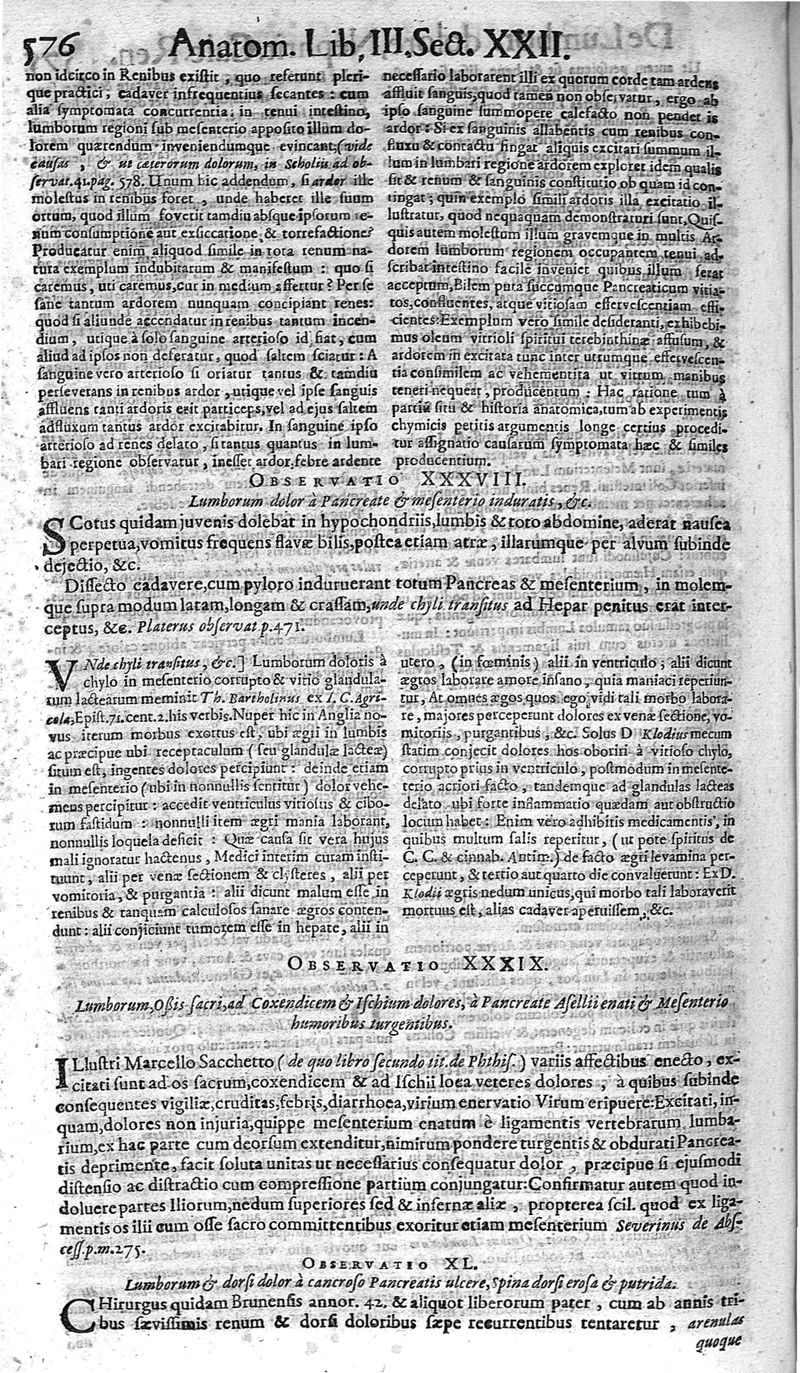 576 Anatom. Lib. III. Sect. XXII.
non idcirco in Renibus existit, quo referunt pleri-
que practici, cadaver infrequentius secantes: cum
alia symptomata concurrentia; in tenui intestino,
lumborum regioni sub mesenterio apposito illum do-
lorem quærendum inveniendumque evincant; (vide
causas, & ut cæterorum dolorum, in Scholiis ad ob-
servat. 41. pag. 578. Unum hic addendum, si ardor ille
molestus in renibus foret, unde haberet ille suum
ortum, quod illum foveret tamdiu absque ipsorum re-
num consumptione aut exsiccatione, & torrefactione?
Producatur enim aliquod simile in tota renum na-
tura exemplum indubitarum & manifestum: quo si
caremus, uti caremus, cur in medium affertur? Per se
sane tantum ardorem nunquam concipiant renes:
quod si aliunde accendatur in renibus tantum incen-
dium, utique à solo sanguine arterioso id fiat, cum
aliud ad ipsos non deferatur, quod saltem sciatur: A
sanguine vero arterioso si oriatur tantus & tamdiu
perseverans in renibus ardor, utique vel ipse sanguis
affluens tanti ardoris erit particeps, vel ad ejus saltem
adfluxum tantus ardor excitabitur. In sanguine ipso
arterioso ad renes delato, si tantus quantus in lum-
bari regione observatur, inesset ardor, febre ardente
necessario laborarent illi ex quorum corde tam ardens
affluit sanguis; quod tamen non observatur, ergo ab
ipso sanguine summopere calefacto non pendet is
ardor: Si ex sanguinis allabentis cum renibus con-
fluxu & contactu fingat aliquis excitari summum il-
lum in lumbari regione ardorem exploret idem qualis
sit & renum & sanguinis constitutio ob quam id con-
tingat; quin exemplo simili ardoris illa excitatio il-
lustratur, quod nequaquam demonstraturi sunt, Quis-
quis autem molestum illum gravemque in multis Ar-
dorem lumborum regionem occupantem tenui ad-
scribat intestino facile inveniet quibus illum ferat
acceptum, Bilem puta succumque Pancreaticum vitia-
tos, confluentes, atque vitiosam effervescentiam effi-
cientes: Exemplum vero simile desideranti, exhibebi-
mus oleum vitrioli spiritui terebinthinæ affusum, &
ardorem in excitata tunc inter utrumque effervescen-
tia consimilem ac vehementia ut vitrum manibus
teneri nequeat, producentum: Hac ratione tum à
partiũ situ & historia anatomica, tum ab experimentis
chymicis petitis argumentis longe certius procedi-
tur assignatio causarum symptomata hæc & similes
producentium.
OBSERVATIO XXXVIII.
Lumborum dolor à Pancreate & mesenterio induratis, &c.
SCotus quidam juvenis dolebat in hypochondriis, lumbis & toto abdomine, aderat nausea
perpetua, vomitus frequens flavæ bilis, postea etiam atræ, illarumque per alvum subinde
dejectio, &c.
Dissecto cadavere, cum pyloro induruerant totum Pancreas & mesenterium, in molem-
que supra modum latam, longam & crassam, unde chyli transitus ad Hepar penitus erat inter-
ceptus, &c. Platerus observat p. 471.
VNde chyli transitus, &c.] Lumborum doloris à
chylo in mesenterio corrupto & vitio glandula-
rum lactearum meminit Th. Bartholinus ex I. C. Agri-
cola, Epist. 71. cent. 2. his verbis. Nuper hic in Anglia no-
vus iterum morbus exortus est, ubi ægri in lumbis
ac præcipue ubi receptaculum (seu glandulæ lacteæ)
situm est, ingentes dolores percipiunt: deinde etiam
in mesenterio (ubi in nonnullis sentitur) dolor vehe-
mens percipitur: accedit ventriculus vitiosus & cibo-
rum fastidum: nonnulli item ægri mania laborant,
nonnullis loquela deficit: Quæ causa sit vera hujus
mali ignoratur hactenus, Medici interim curam insti-
tuunt, alii per venæ sectionem & clysteres, alii per
vomitoria, & purgantia: alii dicunt malum esse in
renibus & tanquam calculosos sanare ægros conten-
dunt: alii conjiciunt tumorem esse in hepate, alii in
utero, (in fœminis) alii in ventriculo; alii dicunt
ægros laborare amore insano, quia maniaci reperiun-
tur, At omnes ægos quos ego vidi tali morbo labora-
re, majores perceperunt dolores ex venæ sectione, vo-
mitoriis, purgantibus, &c. Solus D Klodius mecum
statim conjecit dolores hos oboriri à vitioso chylo,
corrupto prius in ventriculo, postmodum in mesente-
terio acriori facto, tandemque ad glandulas lacteas
delato, ubi forte inflammatio quædam aut obstructio
locum habet: Enim vero adhibitis medicamentis, in
quibus multum salis reperitur, (ut pote spiritus de
C. C. & cinnab. Antim.) de facto ægri levamina per-
ceperunt, & tertio aut quarto die convaluerunt: Ex D.
Klodii ægris nedum unicus, qui morbo tali laboraverit
mortuus est, alias cadaver aperuissem, &c.
OBSERVATIO XXXIX.
Lumborum, Ossis sacri, ad Coxendicem & Ischium dolores, à Pancreate Asellii enati & Mesenterio
humoribus turgentibus.
ILlustri Marcello Sacchetto (de quo libro secundo tit. de Phthis.) variis affectibus enecto, ex-
citati sunt ad os sacrum, coxendicem & ad Ischii loca veteres dolores, à quibus subinde
consequentes vigiliæ, cruditas, febris, diarrhoea, virium enervatio Virum eripuere: Excitati, in-
quam, dolores non injuria, quippe mesenterium enatum è ligamentis vertebrarum lumba-
rium, ex hac parte cum deorsum extenditur, nimirum pondere turgentis & obdurati Pancrea-
tis deprimente, facit soluta unitas ut necessarius consequatur dolor, præcipue si ejusmodi
distensio ac distractio cum compressione partium conjungatur: Confirmatur autem quod in-
doluere partes Iliorum, nedum superiores sed & infernæ aliæ, propterea scil. quod ex liga-
mentis os ilii cum osse sacro committentibus exoritur etiam mesenterium Severinus de Abs-
cess. p. m. 275.
OBSERVATIO XL.
Lumborum & dorsi dolor à cancroso Pancreatis ulcere, Spina dorsi erosa & putrida.
CHirurgus quidam Brunensis annor. 42. & aliquot liberorum pater, cum ab annis tri-
bus sævissimis renum & dorsi doloribus sæpe recurrentibus tentaretur, arenulas
quoque